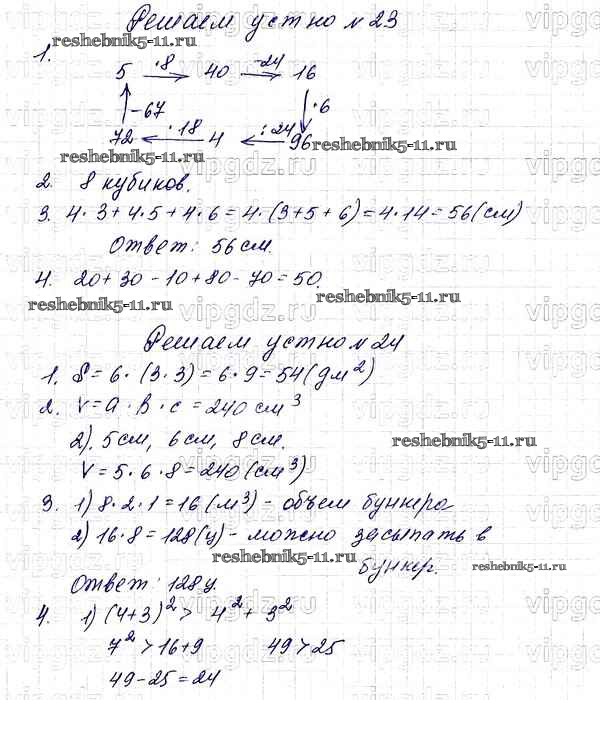 Решаем устно №23
reshebnik5-11.ru
1.
5 ·8 40 -24 16
-67 ·6
72 ·18 4 :24 96
reshebnik5-11.ru
reshebnik5-11.ru
2. 8 кубиков.
3. 4·3+4·5+4·6=4·(3+5+6)=4·14=56(см)
Ответ: 56 см.
4. 20+30-10+80-70=50.
reshebnik5-11.ru
reshebnik5-11.ru
Решаем устно №24
1. S=6·(3·3)=6·9=54(дм²)
2. V=a·b·c=240 см³
2). 5см, 6см, 8см.
reshebnik5-11.ru
V=5·6·8=240(см³)
3. 1) 8·2·1=16(м³) - объем бункера
2) 16·8=128(ц) - можно засыпать в
бункер.
reshebnik5-11.ru
reshebnik5-11.ru
Ответ: 128ц
4. 1) (4+3)²> 4²+3²
7²>16+9 49>25
49-25=24
vipgdz.ru